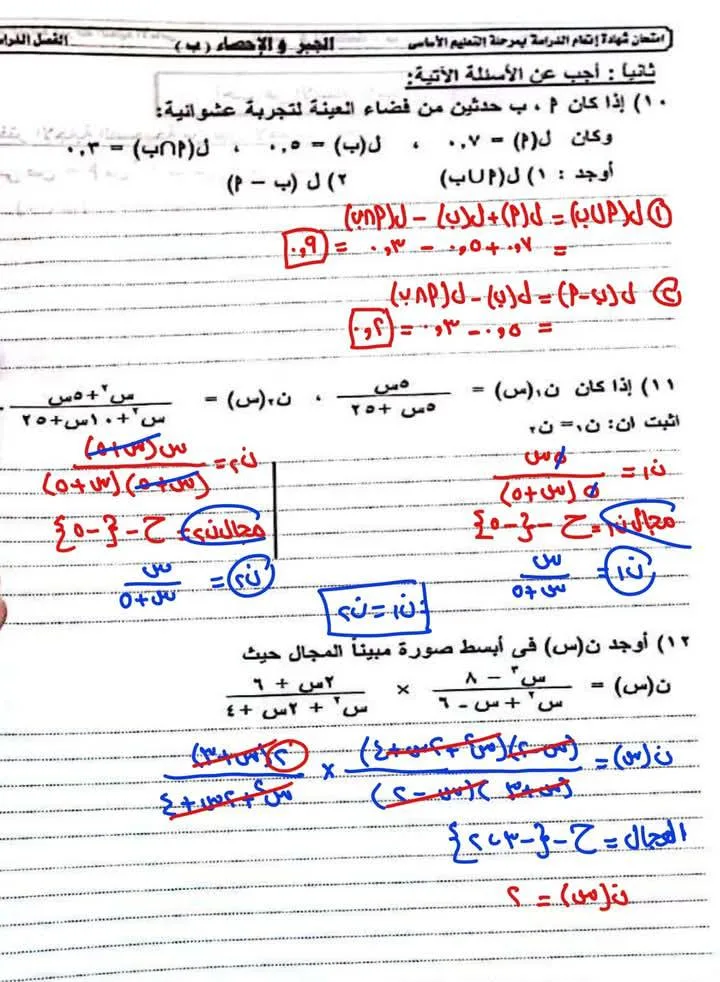 امتحان شهادة إتمام الدراسة بمرحلة التعليم الأساسى الجبر والإحصاء (ب) الفصل الدراس
ثانياً : أجب عن الأسئلة الآتية:
١٠) إذا كان م ، ب حدثين من فضاء العينة لتجربة عشوائية:
وكان ل(م) = ٠,٧ ، ل(ب) = ٠,٥ ، ل(م∩ب) = ٠,٣
أوجد : ١) ل(م∪ب) ٢) ل (ب – م)
① ل(م∪ب) = ل(م) + ل(ب) - ل(م∩ب)
= ٠,٧ + ٠,٥ - ٠,٣ = ٠,٩
② ل(ب-م) = ل(ب) - ل(م∩ب)
= ٠,٥ - ٠,٣ = ٠,٢
١١) إذا كان ن١(س) = ٥س / ٥س + ٢٥ ، ن٢(س) = س٢+٥س / س٢+١٠س+٢٥
اثبت ان: ن١ = ن٢
ن١ = ٥س / ٥(س+٥)
مجال ن١ = ح - {-٥}
ن١ = س / س+٥
ن٢ = س(س+٥) / (س+٥)(س+٥)
مجال ن٢ = ح - {-٥}
ن٢ = س / س+٥
∴ ن١ = ن٢
١٢) أوجد ن(س) فى أبسط صورة مبيناً المجال حيث
ن(س) = س٣ – ٨ / س٢ + س – ٦ × ٢س + ٦ / س٢ + ٢س + ٤
ن(س) = (س-٢)(س٢+٢س+٤) / (س+٣)(س-٢) × ٢(س+٣) / س٢+٢س+٤
المجال = ح - {-٣ ، ٢}
ن(س) = ٢